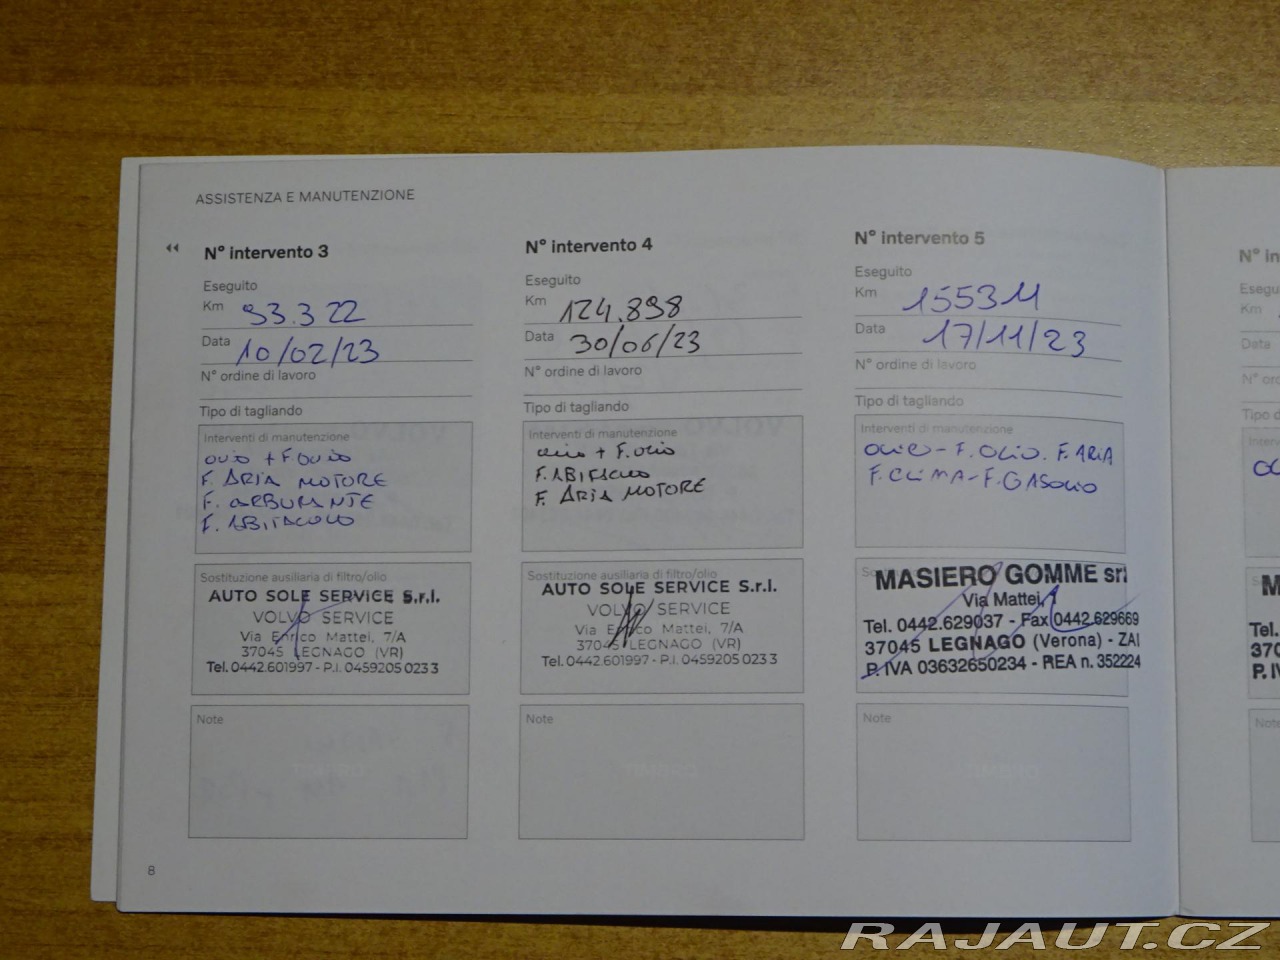 ASSISTENZA E MANUTENZIONE
N° intervento 3
Eseguito
Km 93.322
Data 10/02/23
N° ordine di lavoro
Tipo di tagliando
Interventi di manutenzione
OLIO + F. OLIO
F. ARIA MOTORE
F. CARBURANTE
F. ABITACOLO
Sostituzione ausiliaria di filtro/olio
AUTO SOLE SERVICE S.r.l.
VOLVO SERVICE
Via Enrico Mattei, 7/A
37045 LEGNAGO (VR)
Tel. 0442.601997 - P.I. 0459205 023 3
Note
8
N° intervento 4
Eseguito
Km 124.898
Data 30/06/23
N° ordine di lavoro
Tipo di tagliando
Interventi di manutenzione
OLIO + F. OLIO
F. ABITACOLO
F. ARIA MOTORE
Sostituzione ausiliaria di filtro/olio
AUTO SOLE SERVICE S.r.l.
VOLVO SERVICE
Via Enrico Mattei, 7/A
37045 LEGNAGO (VR)
Tel. 0442.601997 - P.I. 0459205 023 3
Note
N° intervento 5
Eseguito
Km 155311
Data 17/11/23
N° ordine di lavoro
Tipo di tagliando
Interventi di manutenzione
OLIO - F. OLIO. F. ARIA
F. CLIMA - F. GASOLIO
MASIERO GOMME srl
Via Mattei,
Tel. 0442.629037 - Fax 0442.629669
37045 LEGNAGO (Verona) - ZAI
P. IVA 03632650234 - REA n. 352224
Note
N° in
Esegu
Km
Data
N° ord
Tipo d
Interv
Tel.
370
P. IV
Note
RAJAUT.CZ